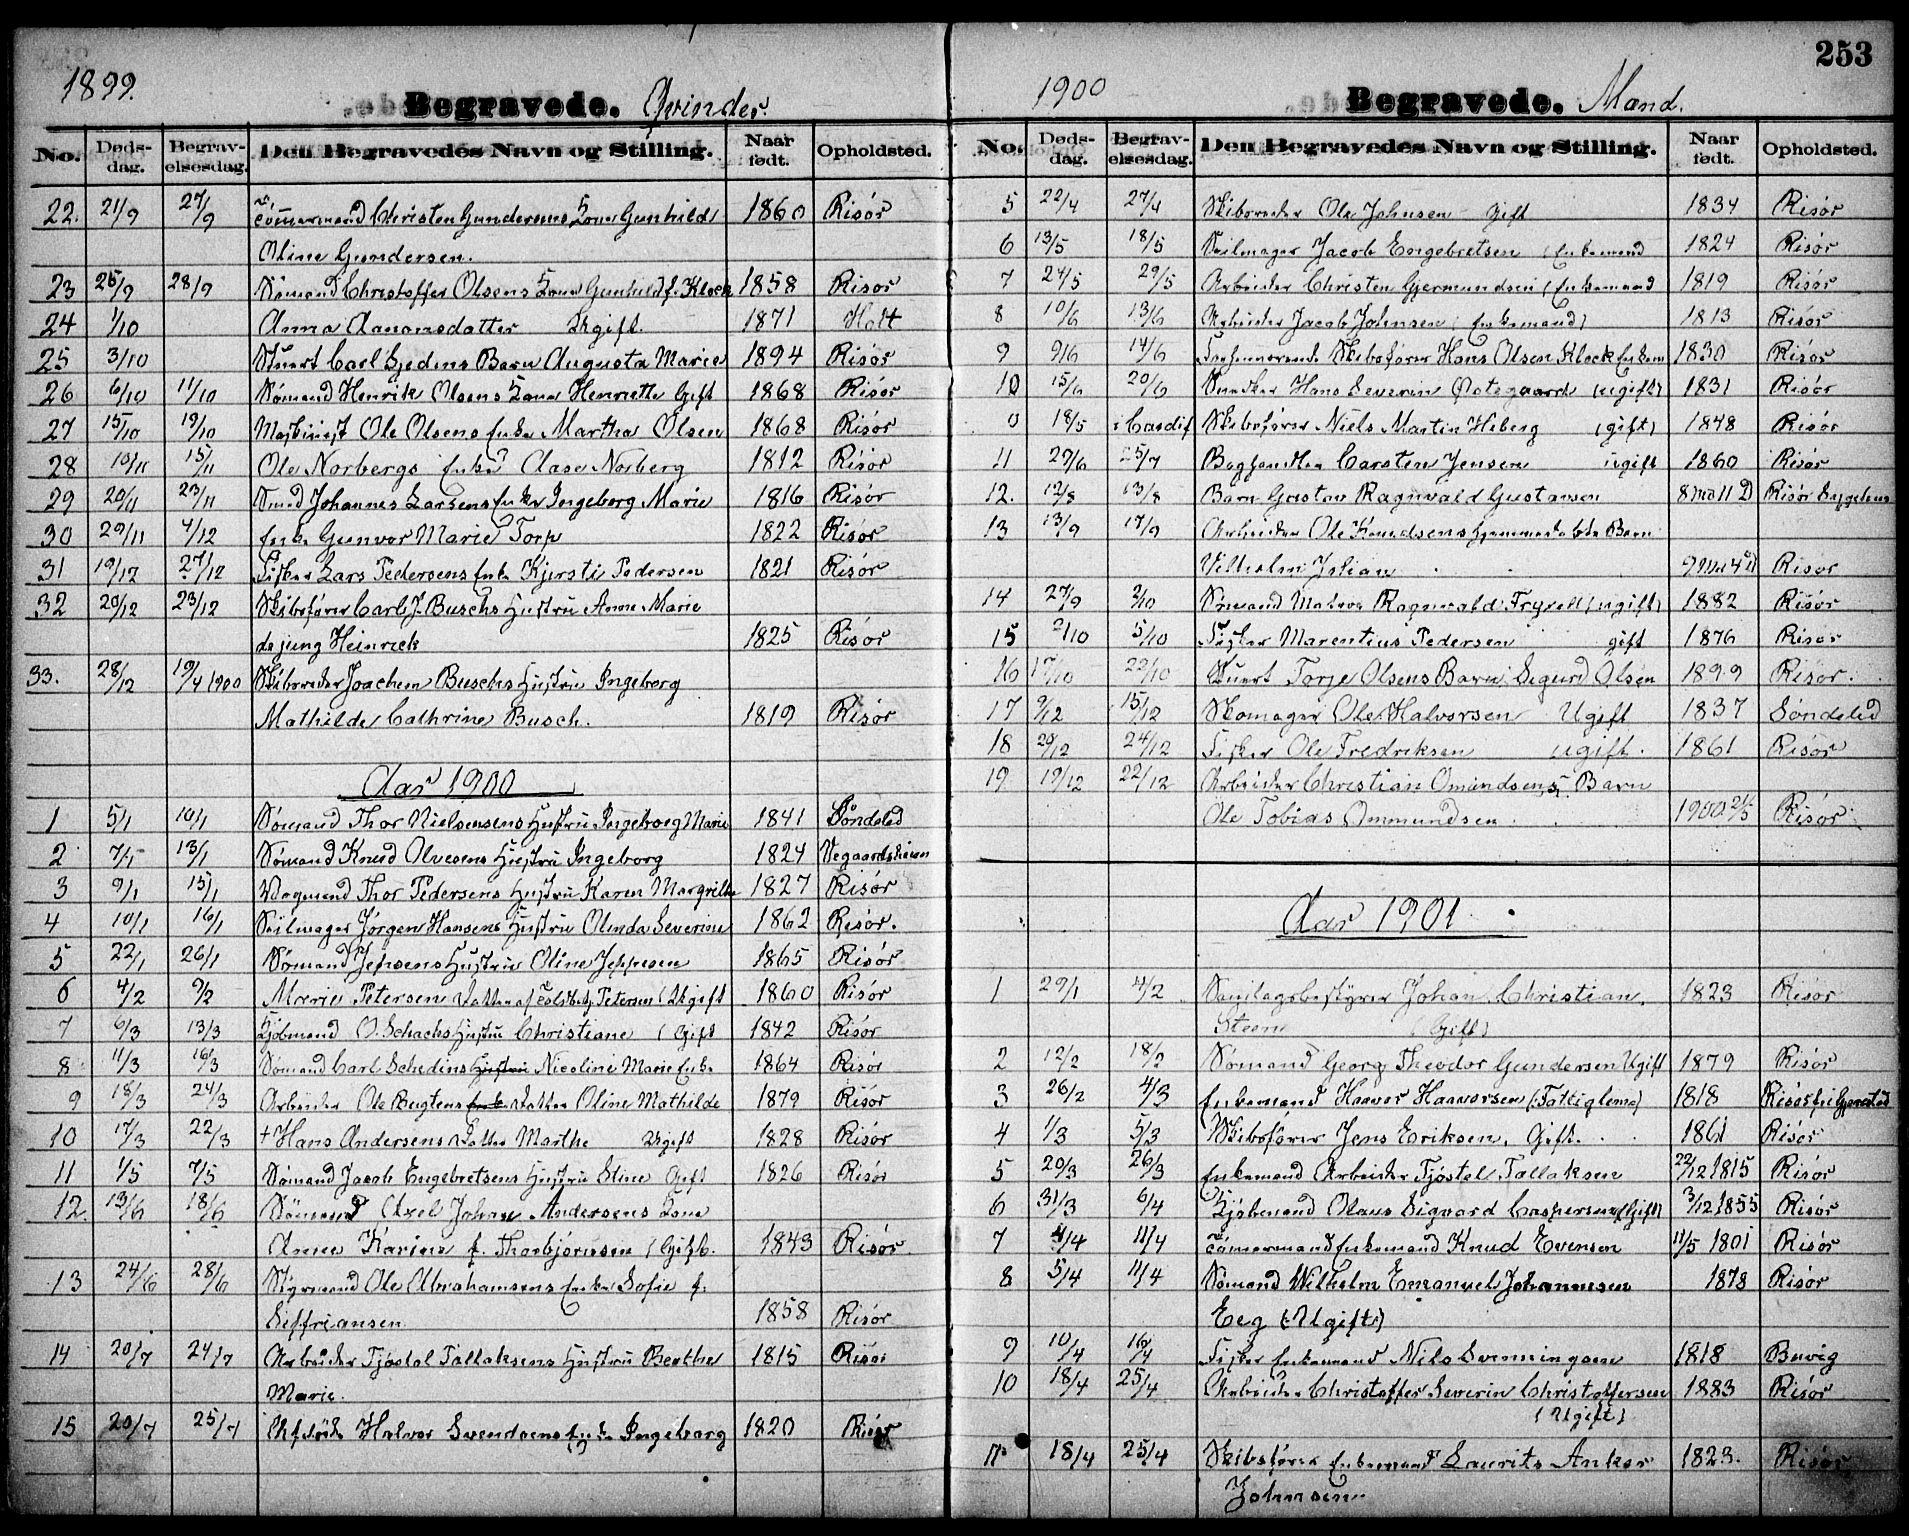 253
1899.
Begravede. Qvinder.
No. Døds-dag. Begrav-elsesdag. Den Begravedes Navn og Stilling. Naar født. Opholdsted.
22. 21/9 27/9 Tömmermand Christen Gundersens Kone Gunhild 1860 Risör
Oline Gundersen.
23 25/9 28/9 Sömand Christoffer Olsens Kone Gunhild f. Klock 1858 Risør
24 1/10 Anna Aanonsdatter Ugift. 1871 Holt
25 3/10 Stuert Carl Barn Augusta Marie 1894 Risör
26 6/10 11/10 Sömand Henrik Olsens Kone Henriette Gift 1868 Risør
27 15/10 19/10 Maskinist Ole Olsens Enke Martha Olsen 1868 Risör
28 10/11 15/11 Ole Norbergs Enke Aase Norberg 1812 Risör
29 20/11 23/11 Smed Johannes Larsens Enke Ingeborg Marie 1816 Risör
30 29/11 4/12 Enke Gunvor Marie Torp 1822 Risör
31 19/12 27/12 Fisker Lars Pedersens Enke Kjersti Pedersen 1821 Risör
32 20/12 23/12 Skibsförer Carl J. Buschs Hustru Anne Marie
de jung Heinrich 1825 Risör
33. 28/12 19/4 1900 Skibsreder Joachem Buschs Hustru Ingeborg
Mathilde Cathrine Busch. 1819 Risör
Aar 1900
1 5/1 10/1 Sømand Thor Nielsensens Hustru Ingeborg Marie 1841 Söndeled
2 7/1 13/1 Sömand Knud Olvesens Hustru Ingeborg 1824 Vegaardsheien
3 9/1 15/1 Vognmand Thor Pedersens Hustru Karen Margrethe 1827 Risör
4 10/1 16/1 Seilmager Jørgen Hansens Hustru Olinda Severine 1862 Risör.
5 22/1 26/1 Sömand Jepsens Hustru Oline Jeppesen 1865 Risör
6 4/2 9/2 Marie Petersen Datter af Petersen (Ugift 1860 Risör
7 6/3 13/3 Kjöbmand O. Schachs Hustru Christiane (Gift 1842 Risör
8 11/3 16/3 Sømand Carl Schedins Hustru Nicoline Marie Enke 1864 Risör
9 18/3 24/3 Arbeider Ole Bugtens Enke Datter Oline Mathilde 1879 Risör
10 17/3 22/3 + Hans Andersens Datter Marthe Ugift 1828 Risör
11 1/5 7/5 Sømand Jacob Engebretsens Hustru Stine Gift 1826 Risör
12. 13/6 18/6 Sömand Axel Johan Andersens Kone
Anne Karine f. Thorbjörnsen (Gift. 1843 Risör.
13 24/6 28/6 Styrmand Ole Abrahamsens Enke Sofie f.
Siffriansen. 1858 Risör
14 20/7 24/7 Arbeider Tjöstol Tallaksens Hustru Berthe 1815 Risör
Marie.
15 20/7 25/7 Halvor Svendsens Enke Ingeborg 1820 Risör
1900
Begravede. Mænd.
No. Døds-dag. Begrav-elsesdag. Den Begravedes Navn og Stilling. Naar født. Opholdsted.
5 22/4 27/4 Skibsreder Ole Johnsen Gift 1834 Risör
6 13/5 18/5 Seilmager Jacob Engebretsen (Enkemand 1824 Risör
7 24/5 29/5 Arbeider Christen Gjermundsen (Enkemand 1819 Risör
8 10/6 13/6 Arbeider Jacob Johnsen (Enkemand) 1813 Risör
9 9/6 14/6 Forhenværende Skibsförer Hans Olsen Klock Enkem 1830 Risör
10 15/6 20/6 Snedker Hans Severin Östegaard (ugift) 1831 Risör
0 18/5 i Cardif Skibsförer Niels Martin Heberg (gift) 1848 Risör
11 29/6 25/7 Boghandler Carsten Jensen ugift 1860 Risör
12. 12/8 13/8 Barn Gustav Ragnvald Gustavsen 8 M 11 D Risör
13 13/9 17/9 Arbeider Ole Knudsens Barn
Vilhelm Johan 9 M 4 D Risør
14 27/9 2/10 Sömand Ragnvald Fryxell (ugift) 1882 Risör
15 2/10 5/10 Fisker Marentius Pedersen gift 1876 Risør
16 17/10 22/10 Stuert Torje Olsens Barn Sigurd Olsen 1899 Risör.
17 9/12 15/12 Skomager Ole Halvorsen Ugift 1837 Söndeled
18 20/12 24/12 Fisker Ole Fredriksen ugift. 1861 Risör
19 19/12 22/12 Arbeider Christian Omundsens Barn
Ole Tobias Ommundsen 1900 21/5 Risör
Aar 1901.
1 29/1 4/2 Johan Christian 1823 Risör
Steen (Gift)
2 12/2 18/2 Sømand Georg Theodor Gundersen Ugift 1879 Risör
3 26/2 4/3 Enkemand Haavor Haavorsen (Fattiglem) 1818 Risör
4 1/3 5/3 Skibsförer Jens Eriksen. Gift. 1861 Risör
5 20/3 26/3 Enkemand Arbeider Tjöstol Tallaksen 22/12 1815 Risör
6 31/3 6/4 Kjöbmand Olaus Sigvard Caspersen (Gift) 3/12 1855 Risör
7 4/4 11/4 Tömmermand Enkemand Knud Evensen 11/5 1801 Risör
8 5/4 11/4 Sömand Wilhelm Emanuel Johannesen 1878 Risör
Eeg (Ugift)
9 10/4 16/4 Fisker Enkemand Nils Svenningsen 1818 Buvig
10 18/4 25/4 Arbeider Christoffer Severin Christoffersen 1883 Risör
(Ugift)
11 18/4 25/4 Skibsförer Enkemand Laurits Anker 1823. Risör
Johnsen